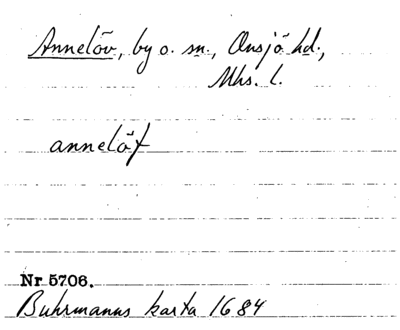 Annelöv, by o. sn., Onsjö hd.,
Mhs. l.
annelöf
Nr 5706.
Buhrmanns karta 1684